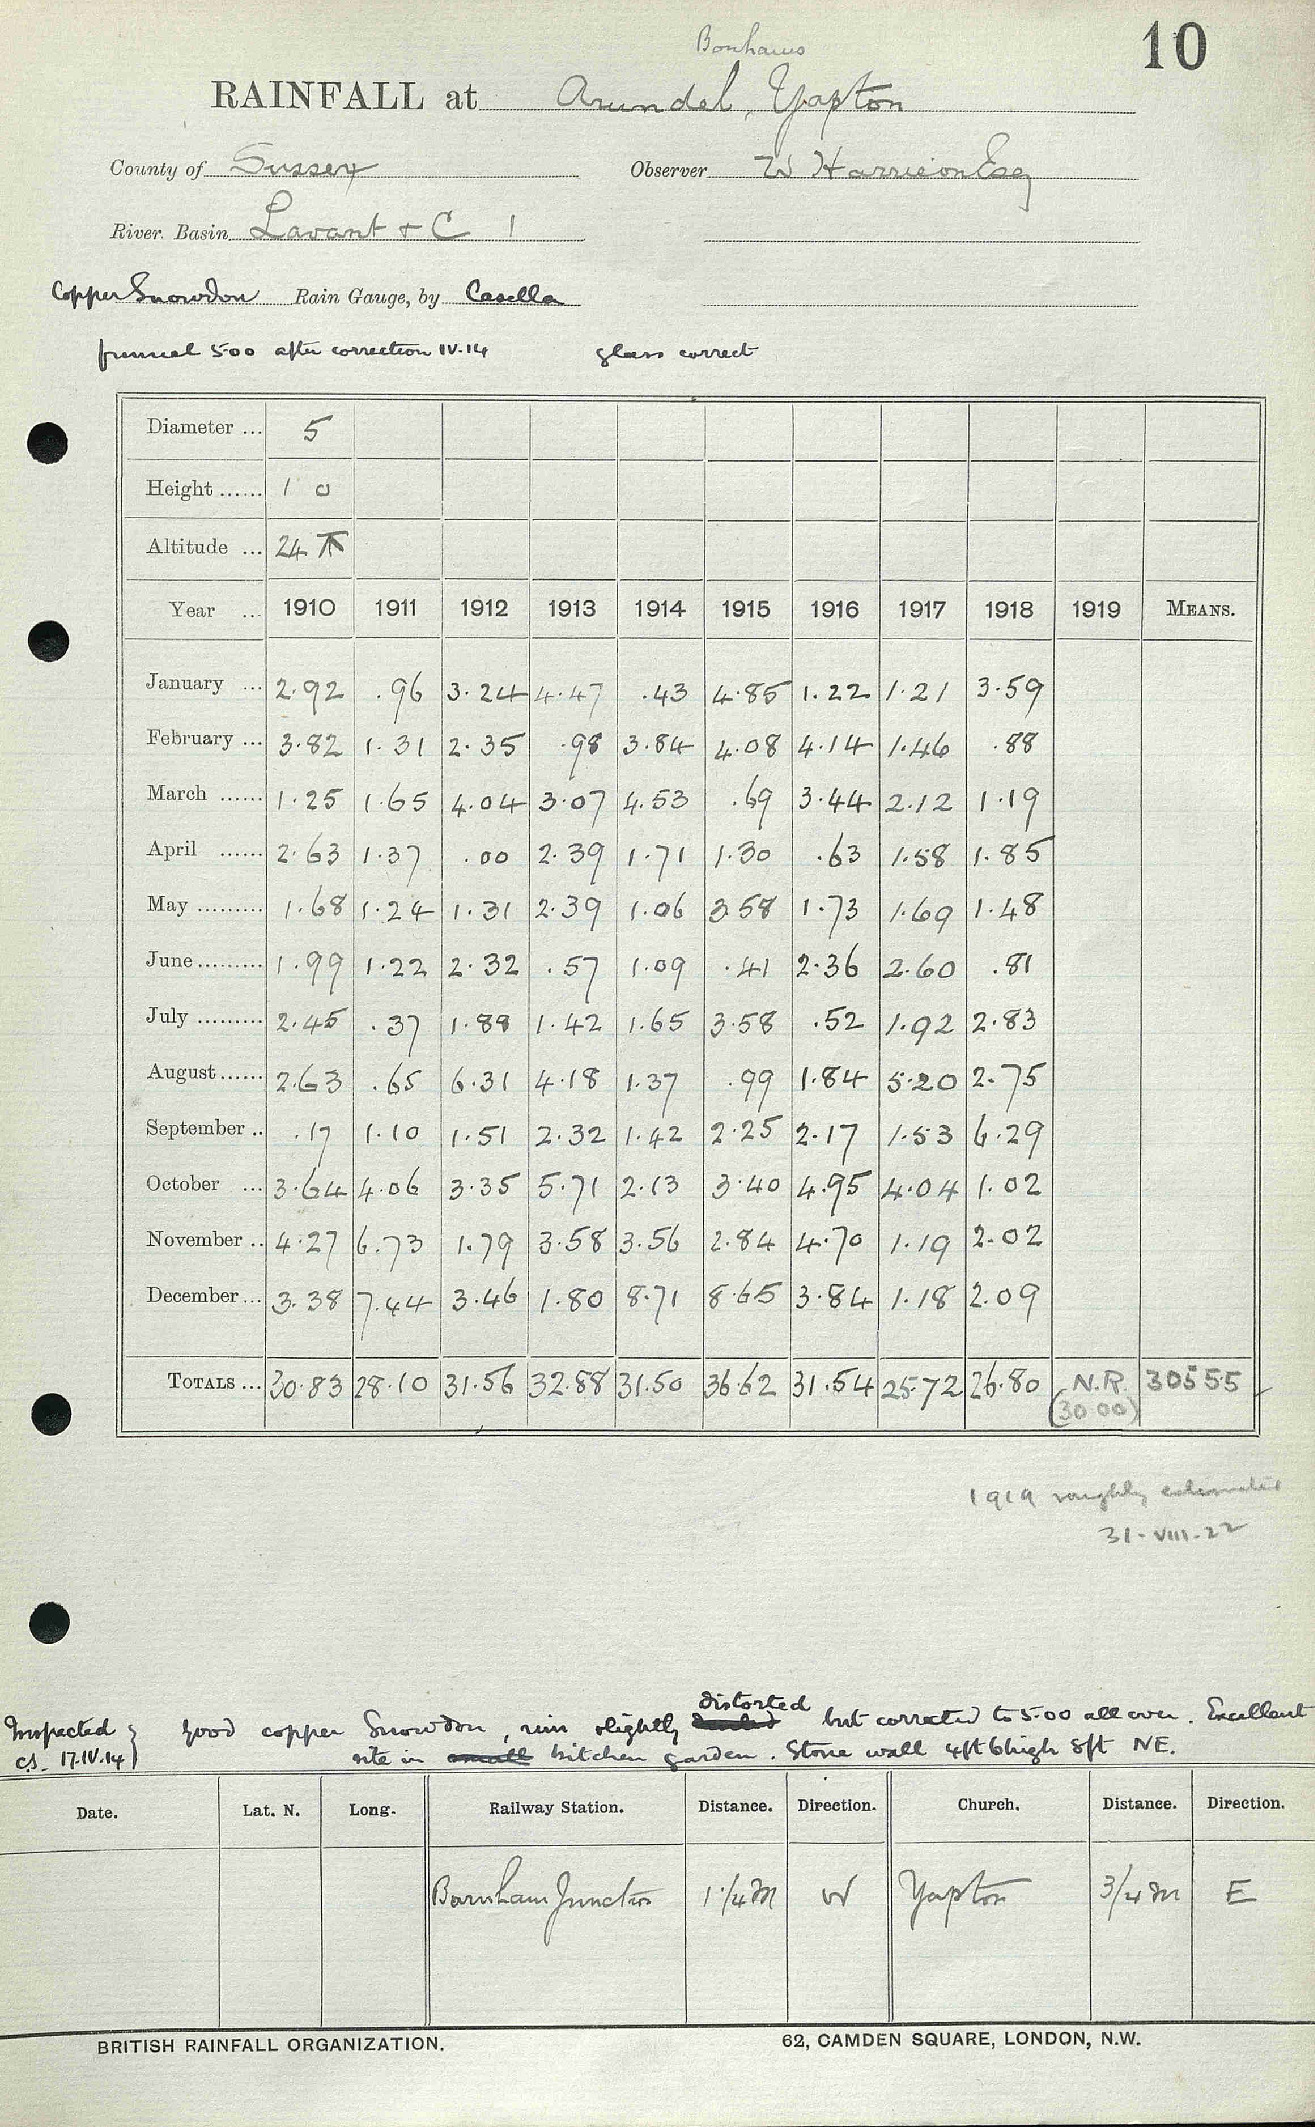 10
Bonhams
RAINFALL at Arundel, Yapton
County of Sussex Observer W Harrison Esq
River Basin Lavant + C 1
Copper Snowdon Rain Gauge, by Casella
funnel 5.00 after correction IV.14 glass correct
Diameter ... 5
Height ...... 1 0
Altitude ... 24
Year ... 1910 1911 1912 1913 1914 1915 1916 1917 1918 1919 MEANS.
January ... 2.92 .96 3.24 4.47 .43 4.85 1.22 1.21 3.59
February ... 3.82 1.31 2.35 .98 3.84 4.08 4.14 1.46 .88
March ...... 1.25 1.65 4.04 3.07 4.53 .69 3.44 2.12 1.19
April ...... 2.63 1.37 .00 2.39 1.71 1.30 .63 1.58 1.85
May ......... 1.68 1.24 1.31 2.39 1.06 3.58 1.73 1.69 1.48
June ......... 1.99 1.22 2.32 .57 1.09 .41 2.36 2.60 .81
July ......... 2.45 .37 1.88 1.42 1.65 3.58 .52 1.92 2.83
August ...... 2.63 .65 6.31 4.18 1.37 .99 1.84 5.20 2.75
September .. .17 1.10 1.51 2.32 1.42 2.25 2.17 1.53 6.29
October ... 3.64 4.06 3.35 5.71 2.13 3.40 4.95 4.04 1.02
November .. 4.27 6.73 1.79 3.58 3.56 2.84 4.70 1.19 2.02
December ... 3.38 7.44 3.46 1.80 8.71 8.65 3.84 1.18 2.09
TOTALS ... 30.83 28.10 31.56 32.88 31.50 36.62 31.54 25.72 26.80 N.R. 30555
(30.00)
1919 roughly estimated
31-VIII-22
Inspected } good copper Snowdon, rim slightly distorted but corrected to 5.00 all over. Excellent
CS. 17.IV.14 } site in small kitchen garden. Stone wall 4ft 6 high 8ft NE.
Date. Lat. N. Long. Railway Station. Distance. Direction. Church. Distance. Direction.
Barnham Junction 1 1/4 M W Yapton 3/4 M E
BRITISH RAINFALL ORGANIZATION. 62, CAMDEN SQUARE, LONDON, N.W.